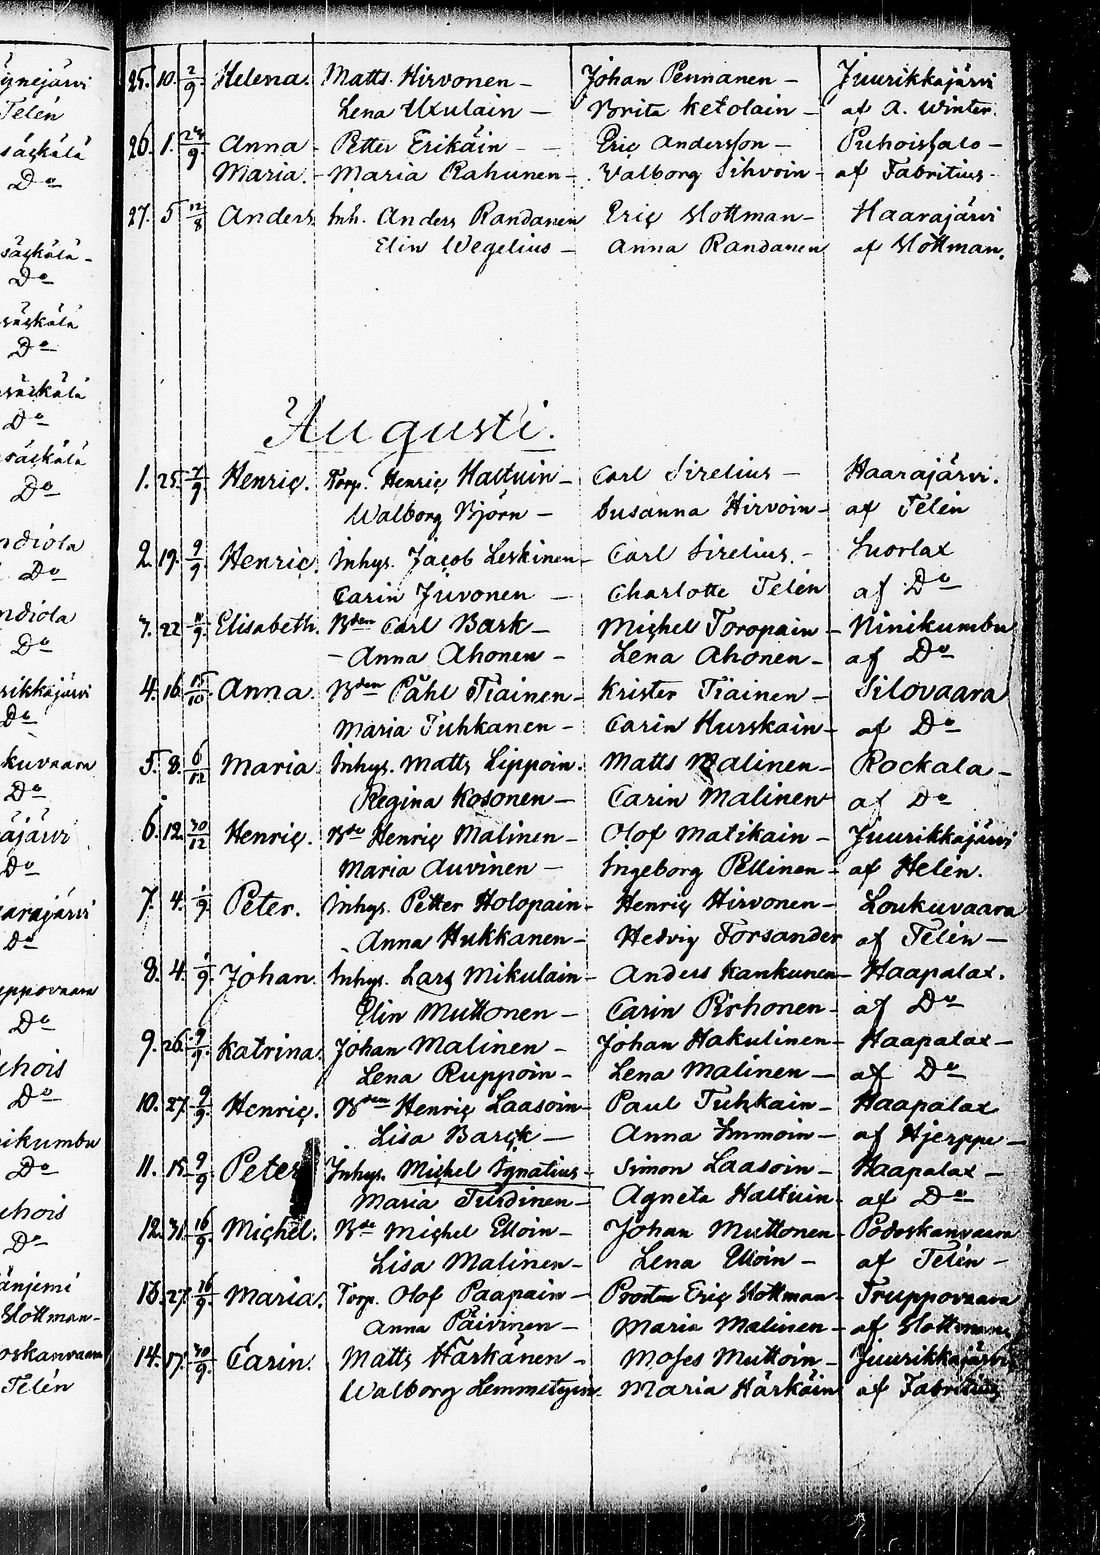 ygnejärvi
Telén
säskälä
Do
säskälä
Do
säskälä
Do
säskälä
Do
säskälä
Do
ndiola
Do
ndiola
Do
rikkäjärvi
Do
kuvaara
Do
äjärvi
Do
aarajärvi
Do
uppovaara
Do
uhois
Do
nikumbu
Do
uhois
Do
änjemi
Hottman
oskanvaara
Telén
25. 10. 2/9 Helena. Matts Hirvonen - Johan Pennanen - Juurikkajärvi
Lena Uxulain - Brita Ketolain - af A. Winter.
26. 1. 24/9. Anna - Petter Erikäin - - Eric Andersson - Puhoissalo -
Maria. - Maria Rahunen - Valborg Sihvoin - af Fabritius -
27. 5 12/8 Anders Inh. Anders Randanen Eric Hottman - Haarajärvi
Elin Wegelius - Anna Randanen af Hottman.
Augusti.
1. 25. 7/9 Henric. Torp. Henric Haltuin - Carl Sirelius - Haarajärvi.
Walborg Björn - Susanna Hirvoin - af Telén
2. 19. 9/9 Henric. Inhys. Jacob Leskinen - Carl Sirelius. - Suorlax
Carin Juvonen - Charlotte Telén af Do
3. 22 /9. Elisabeth. Bden Carl Bark - Michel Toropain - Ninikumbu
- Anna Ahonen - Lena Ahonen - af Do
4. 16. 15/10 Anna. Bden Påhl Tiainen - Krister Tiainen - Silovaara
Maria Tuhkanen - Carin Hurskain - af Do
5. 8. 6/12 Maria Inhys. Matts Lippoin. Matts Malinen - Rockala -
Regina Kosonen - Carin Malinen af Do
6. 12. 30/12 Henric. Bde Henric Malinen - Olof Matikain - Juurikkajärvi
Maria Auvinen - Ingeborg Pellinen - af Helén.
7. 4. 1/9 Peter. Inhys. Petter Holopain - Henric Hirvonen - Loukuvaara
Anna Hukkanen - Hedvig Forsander af Telén -
8. 4. 1/9. Johan. Inhys. Lars Mikulain - Anders Kankunen - Haapalax.
Elin Muttonen - Carin Pirhonen - af Do
9. 26. 9/9. Katrina. Johan Malinen - Johan Hakulinen - Haapalax -
Lena Ruppoin - Lena Malinen - af Do
10. 27. 9/9 Henric. Bden Henric Laasoin - Paul Tuhkain - Haapalax
Lisa Barck - Anna Immoin - af Hjerppe -
11. 15. 9/9 Peter Inhys. Michel Ignatius - Simon Laasoin - Haapalax -
Maria Turdinen - Agneta Haltuin - af Do
12. 31. 16/9 Michel. Bde Michel Elloin - Johan Muttonen - Podoskanvaara
Lisa Malinen - Lena Elloin - af Telén -
13. 27. 16/9. Maria. Torp. Olof Paapain - Prosten Eric Hottman - Truppovaara
Anna Päivinen - Maria Malinen - af Hottman
14. 17. 30/9. Carin. Matts Härkänen - Moses Muttoin - Juurikkajärvi
Walborg Lemmetyin. Maria Härkäin af Fabritius